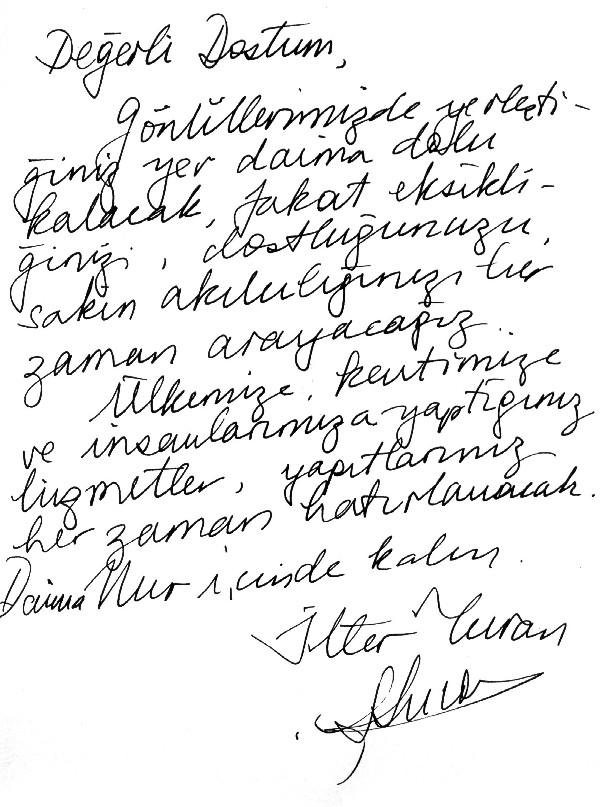 Değerli Dostum,
Gönüllerimizde yerleşti-
ğiniz yer daima dolu
kalacak, fakat eksikli-
ğinizi, dostluğunuzu,
sakin akılılığınızı her
zaman arayacağız..
Ülkemize, kentimize
ve insanlarımıza yaptığınız
hizmetler, yapıtlarınız
her zaman hatırlanacak.
Daima Nur içinde kalın.
İlter Turan